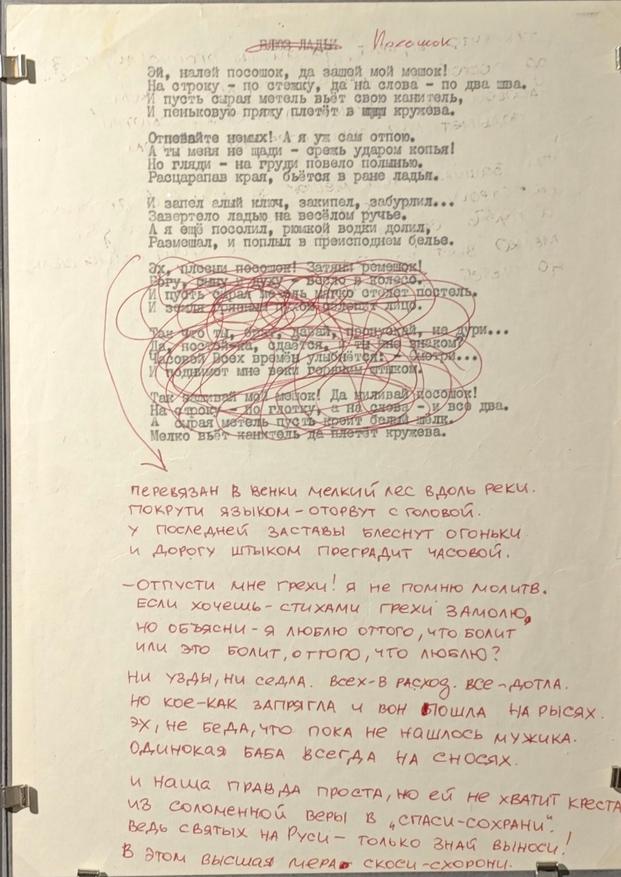 БЛЮЗ ЛАДЬИ - Посошок.
Эй, налей посошок, да зашей мой мешок!
На строку - по стежку, да на слова - по два шва.
И пусть сырая метель вьёт свою канитель,
И пеньковую пряжу плетёт в кружева.
Отпевайте немых! А я уж сам отпою.
А ты меня не щади - срежь ударом копья!
Но гляди - на груди повело полынью.
Расцарапав края, бьётся в ране ладья.
И запел алый ключ, закипел, забурлил...
Завертело ладью на весёлом ручье.
А я ещё посолил, рюмкой водки долил,
Размешал, и поплыл в преисподнем белье.
Эх, плесни посошок! Затяни ремешок!
Богу, сыну, духу - весло в колесо.
И пусть сырая метель мягко стелет постель,
И земля пухом лицо.
Так что ты, брат, давай, пропускай, не дури...
Да, постой-ка, сдаётся, и ты мне знаком?
Часовой Всех времён улыбнётся: - Смотри...
И поднимет мне веки горячим штыком.
Так зашивай мой мешок! Да наливай посошок!
На строку - по глотку, а на слова - и все два.
А сырая метель пусть кроит белый шёлк.
Мелко вьёт канитель да плетёт кружева.
ПЕРЕВЯЗАН В ВЕНКИ МЕЛКИЙ ЛЕС ВДОЛЬ РЕКИ.
ПОКРУТИ ЯЗЫКОМ - ОТОРВУТ С ГОЛОВОЙ.
У ПОСЛЕДНЕЙ ЗАСТАВЫ БЛЕСНУТ ОГОНЬКИ
И ДОРОГУ ШТЫКОМ ПРЕГРАДИТ ЧАСОВОЙ.
- ОТПУСТИ МНЕ ГРЕХИ! Я НЕ ПОМНЮ МОЛИТВ.
ЕСЛИ ХОЧЕШЬ - СТИХАМИ ГРЕХИ ЗАМОЛЮ,
НО ОБЪЯСНИ - Я ЛЮБЛЮ ОТТОГО, ЧТО БОЛИТ
ИЛИ ЭТО БОЛИТ, ОТТОГО, ЧТО ЛЮБЛЮ?
НИ УЗДЫ, НИ СЕДЛА. ВСЕХ - В РАСХОД. ВСЕ - ДОТЛА.
НО КОЕ-КАК ЗАПРЯГЛА И ВОН ПОШЛА НА РЫСЯХ.
ЭХ, НЕ БЕДА, ЧТО ПОКА НЕ НАШЛОСЬ МУЖИКА.
ОДИНОКАЯ БАБА ВСЕГДА НА СНОСЯХ.
И НАША ПРАВДА ПРОСТА, НО ЕЙ НЕ ХВАТИТ КРЕСТА
ИЗ СОЛОМЕННОЙ ВЕРЫ В „СПАСИ-СОХРАНИ".
ВЕДЬ СВЯТЫХ НА РУСИ - ТОЛЬКО ЗНАЙ ВЫНОСИ!
В ЭТОМ ВЫСШАЯ МЕРА СКОСИ-СХОРОНИ.